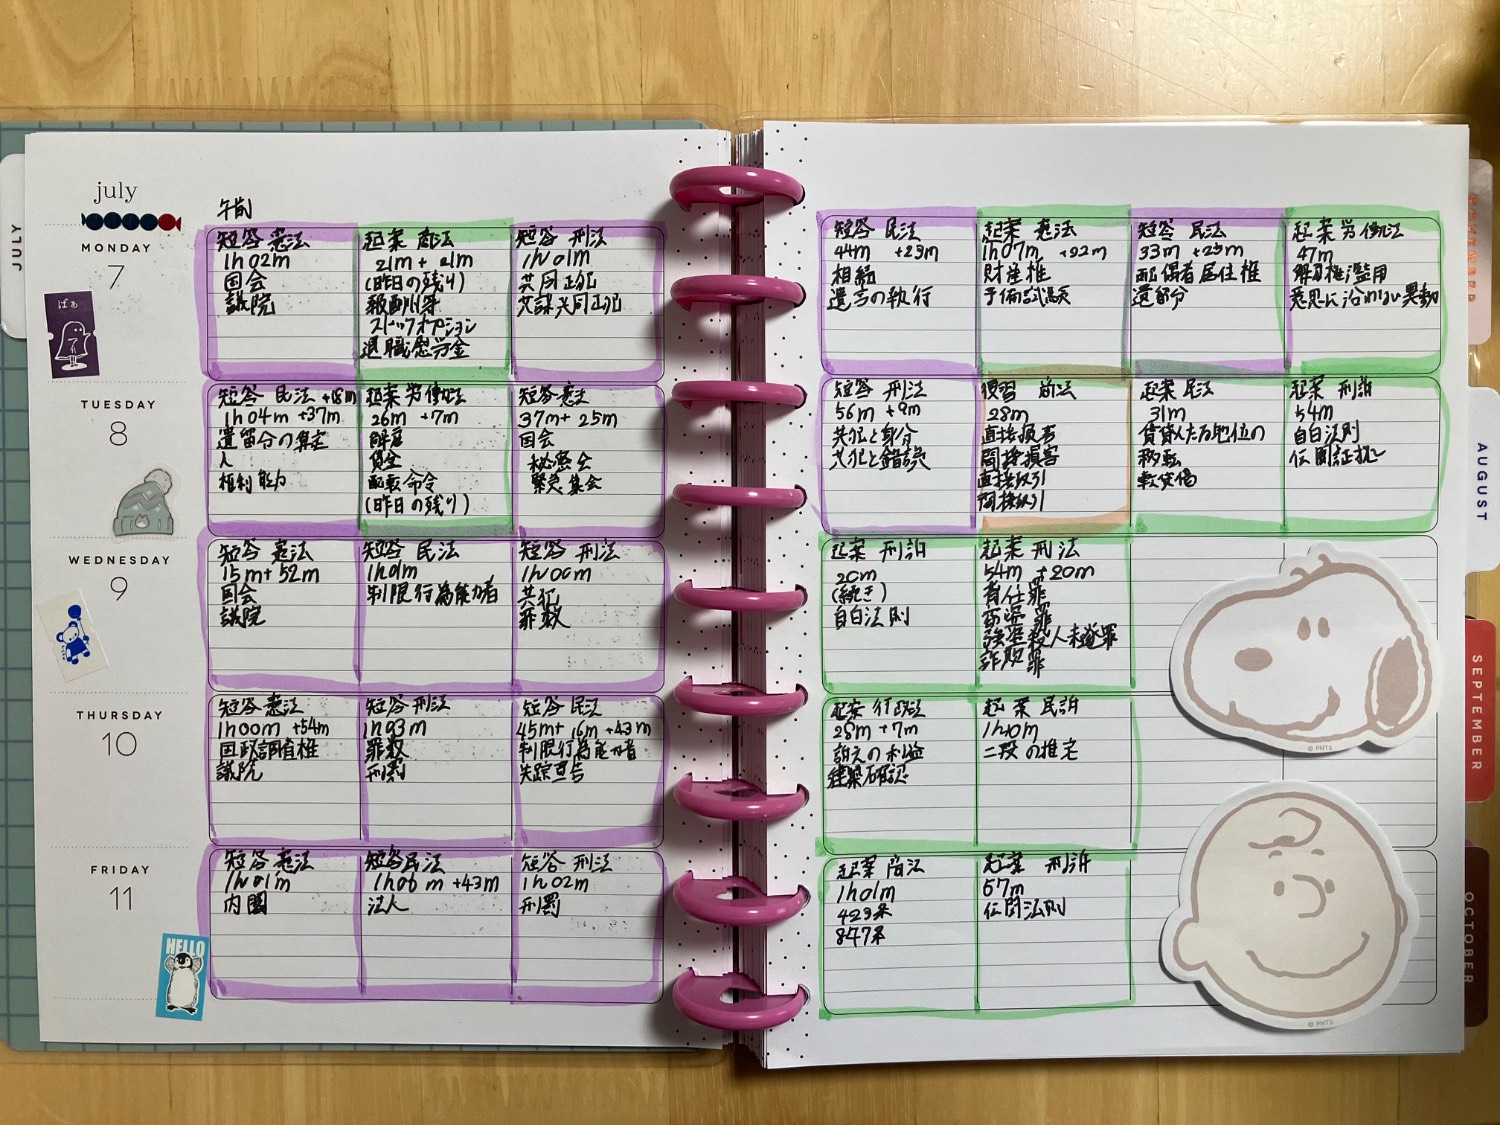 july
午前
JULY
MONDAY
7
短答 憲法
1h02m
国会
議院
起案 商法
21m + 21m
(昨日の残り)
報酬
ストックオプション
退職慰労金
短答 刑法
1h01m
共同正犯
共謀共同正犯
短答 民法
44m +23m
相続
遺言の執行
起案 憲法
1h07m +92m
財産権
予備試験
短答 民法
33m +23m
配偶者居住権
遺留分
起案 労働法
47m
解雇権濫用
意思に沿わない異動
ばぁ
TUESDAY
8
短答 民法 +18m
1h04m +37m
遺留分の算定
人
権利能力
起案 労働法
26m +7m
解雇
賃金
配転命令
(昨日の残り)
短答 憲法
37m+ 25m
国会
秘密会
緊急集会
短答 刑法
56m +9m
共犯と身分
共犯と錯誤
復習 商法
28m
直接損害
間接損害
直接取引
間接取引
起案 民法
31m
賃貸人たる地位の
移転
転貸借
起案 刑訴
54m
自白法則
伝聞証拠
WEDNESDAY
9
短答 憲法
15m+ 52m
国会
議院
短答 民法
1h01m
制限行為能力者
短答 刑法
1h00m
共犯
罪数
起案 刑訴
20m
(続き)
自白法則
起案 刑法
54m +20m
背任罪
強盗殺人未遂罪
詐欺罪
THURSDAY
10
短答 憲法
1h00m +54m
国政調査権
議院
短答 刑法
1h03m
罪数
刑罰
短答 民法
45m+ 16m +43m
制限行為能力者
失踪宣告
起案 行政法
28m +7m
訴えの利益
建築確認
起案 民訴
1h10m
二段の推定
© PNTS
FRIDAY
11
短答 憲法
1h01m
内閣
短答民法
1h06m +43m
法人
短答 刑法
1h02m
刑罰
起案 商法
1h01m
423条
847条
起案 刑訴
57m
伝聞法則
HELLO
© PNTS
AUGUST
SEPTEMBER
OCTOBER